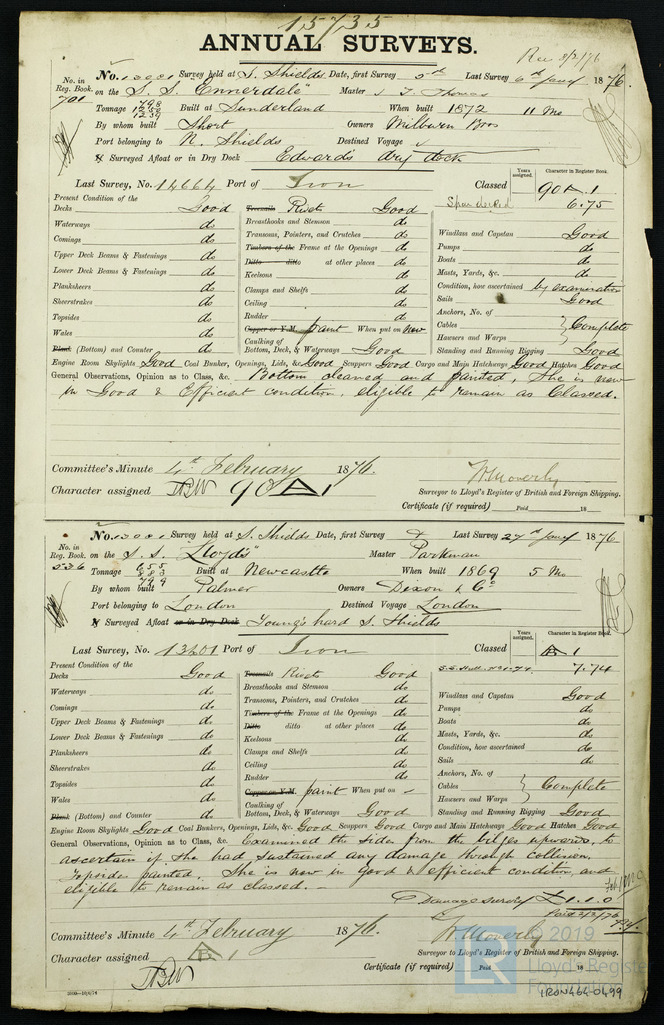 15735
ANNUAL SURVEYS.
Rec 8/2/76
No. in Reg. Book. No. Survey held at S. Shields. Date, first Survey 5th Last Survey 6th Jany 1876.
701 on the S. S. "Ennerdale" Master J. T. Thomas
Tonnage 798 1250 1239 Built at Sunderland When built 1872 11 Mo
By whom built Short Owners Milburn Bros
Port belonging to N. Shields Destined Voyage
Surveyed Afloat or in Dry Dock Edwards dry dock
Years assigned. Character in Register Book.
Last Survey, No. 14664 Port of Iron Classed 90 A 1
Spar decked 6.75
Present Condition of the
Decks Good Treenails Rivets Good
Waterways do Breasthooks and Stemson do Windlass and Capstan Good
Comings do Transoms, Pointers, and Crutches do Pumps do
Upper Deck Beams & Fastenings do Timbers of the Frame at the Openings do Boats do
Lower Deck Beams & Fastenings do Ditto ditto at other places do Masts, Yards, &c. do
Planksheers do Keelsons do Condition, how ascertained by examination
Sheerstrakes do Clamps and Shelfs do Sails Good
Topsides do Ceiling do Anchors, No. of
Wales do Rudder do Cables Complete
Blank (Bottom) and Counter do Copper or Y.M. paint When put on new Hawsers and Warps
Caulking of Bottom, Deck, & Waterways Good Standing and Running Rigging Good
Engine Room Skylights Good Coal Bunker, Openings, Lids, &c. Good Scuppers Good Cargo and Main Hatchways Good Hatches Good
General Observations, Opinion as to Class, &c. Bottom cleaned and painted, She is now
in Good & Efficient condition, eligible to remain as Classed.
Committee's Minute 4th February 1876. W Moverly
Character assigned 90 A 1 Surveyor to Lloyd's Register of British and Foreign Shipping.
Certificate (if required) Paid 18
No. in Reg. Book. No. Survey held at S. Shields Date, first Survey Last Survey 27th Jany 1876
536 on the S. S. "Lloyds" Master Parkman
Tonnage 655 883 799 Built at Newcastle When built 1869 5 Mo
By whom built Palmer Owners Dixon & Co
Port belonging to London Destined Voyage London
Surveyed Afloat or in Dry Dock Young's hard S. Shields
Years assigned. Character in Register Book.
Last Survey, No. 13201 Port of Iron Classed A 1
7.74
Present Condition of the
Decks Good Treenails Rivets Good
Waterways do Breasthooks and Stemson do Windlass and Capstan Good
Comings do Transoms, Pointers, and Crutches do Pumps do
Upper Deck Beams & Fastenings do Timbers of the Frame at the Openings do Boats do
Lower Deck Beams & Fastenings do Ditto ditto at other places do Masts, Yards, &c. do
Planksheers do Keelsons do Condition, how ascertained do
Sheerstrakes do Clamps and Shelfs do Sails do
Topsides do Ceiling do Anchors, No. of
Wales do Rudder do Cables Complete
Blank (Bottom) and Counter do Copper or Y.M. paint When put on Hawsers and Warps
Caulking of Bottom, Deck, & Waterways Good Standing and Running Rigging Good
Engine Room Skylights Good Coal Bunkers, Openings, Lids, &c. Good Scuppers Good Cargo and Main Hatchways Good Hatches Good
General Observations, Opinion as to Class, &c. Examined the sides from the bilges upwards, to
ascertain if she had sustained any damage through collision,
Topsides painted. She is now in Good & efficient condition, and
eligible to remain as classed.
Damage survey £1.1.0
Paid 2/2/76
Committee's Minute 4th February 1876. W Moverly
Character assigned A 1 Surveyor to Lloyd's Register of British and Foreign Shipping.
Certificate (if required) Paid 18
© 2019 Lloyd's Register Foundation
IRON464-0499